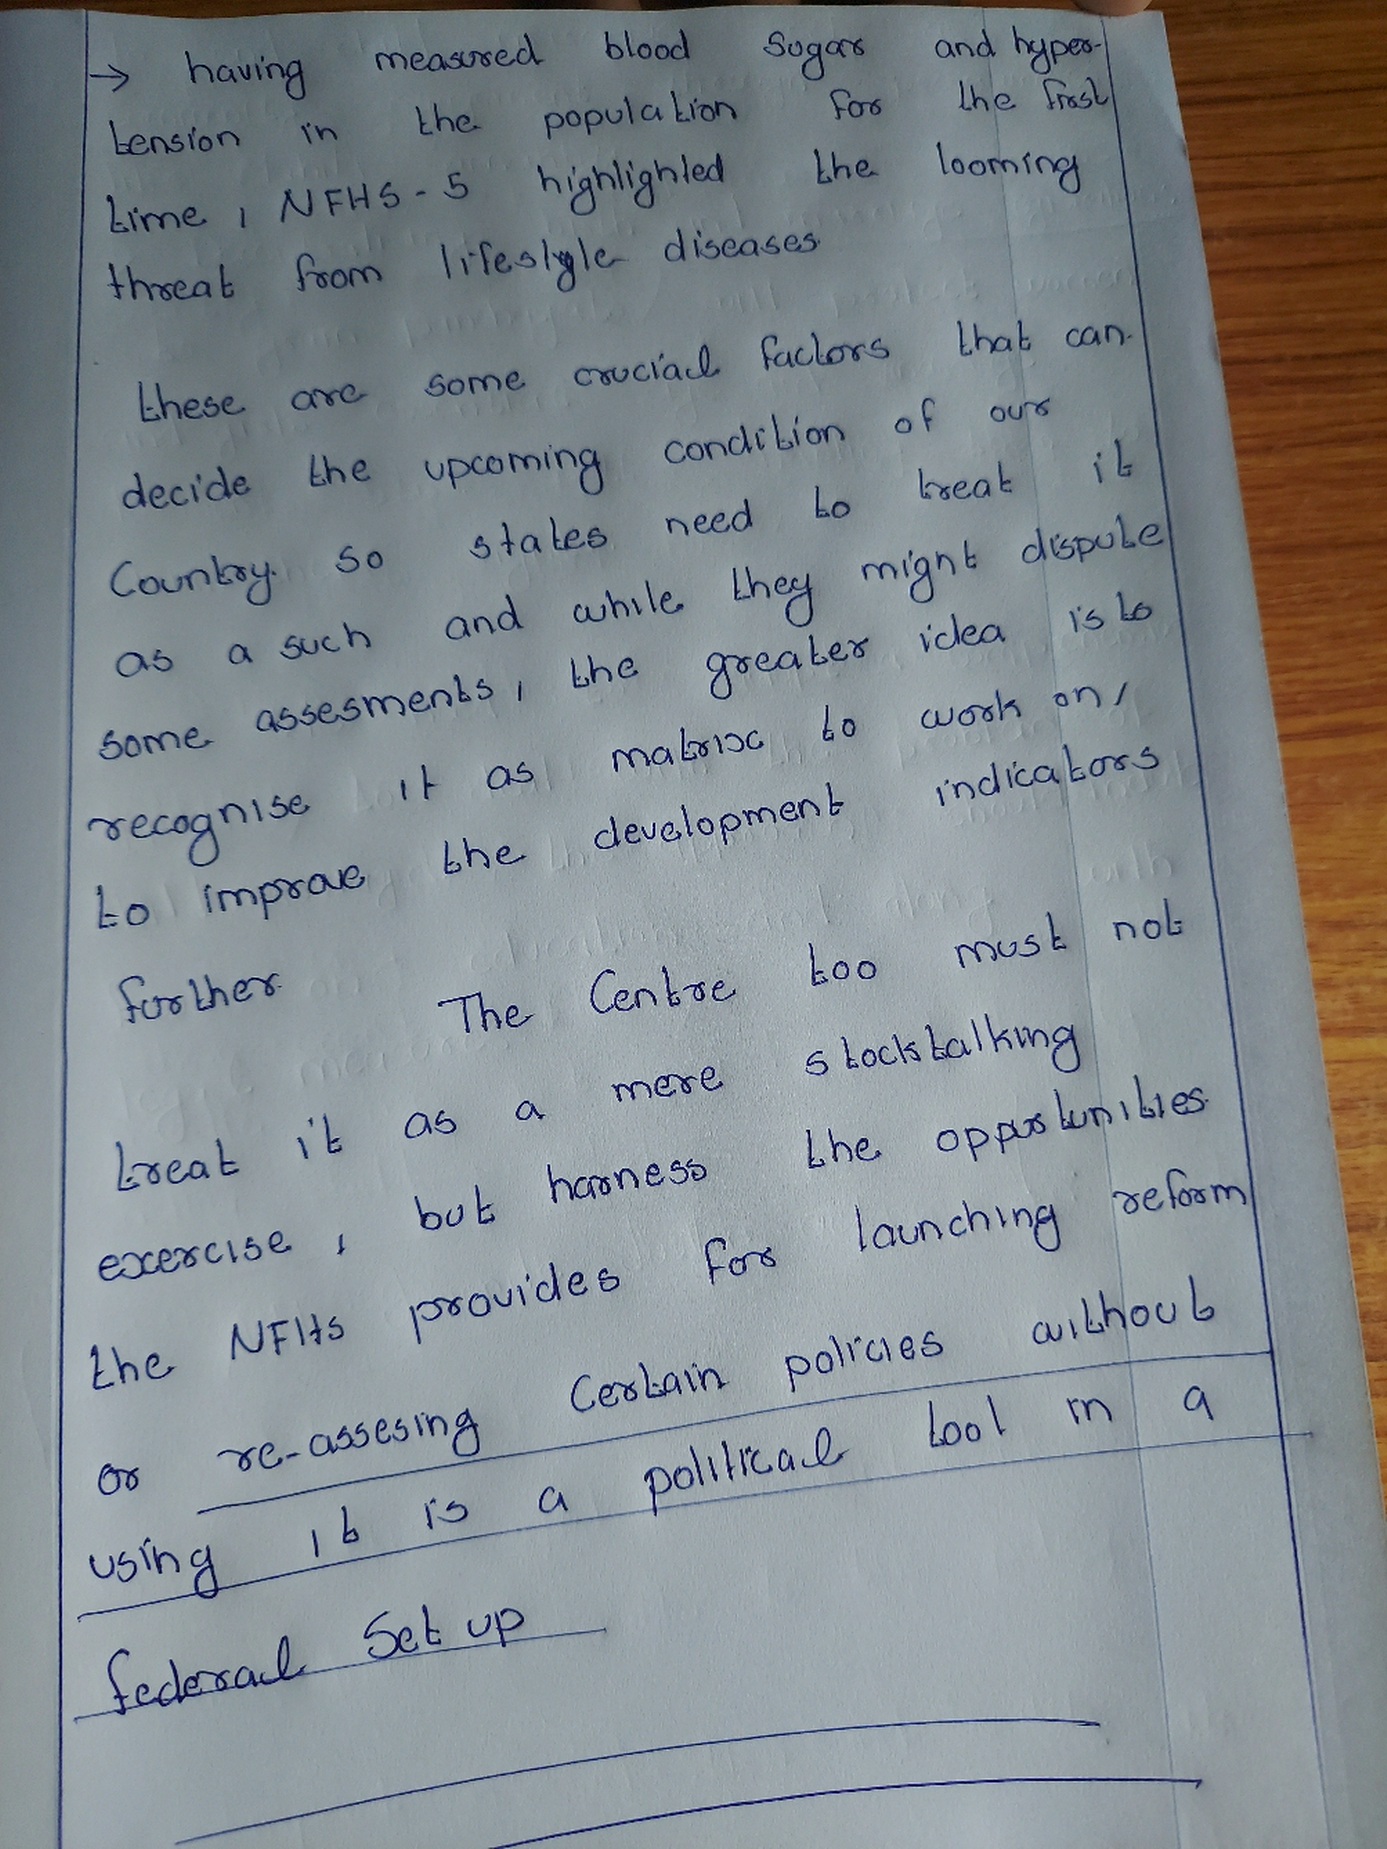 → having measured blood sugar and hyper-
tension in the population for the first
time, NFHS-5 highlighted the looming
threat from lifestyle diseases.
these are some crucial factors that can
decide the upcoming condition of our
Country. so states need to treat it
as a such and while they might dispute
some assesments, the greater idea is to
recognise it as matrix to work on,
to improve the development indicators
further.
The Centre too must not
treat it as a mere stockstalking
exercise, but harness the opportunities
the NFHS provides for launching reform
or re-assesing Certain policies without
using it is a political tool in a
federal Set up